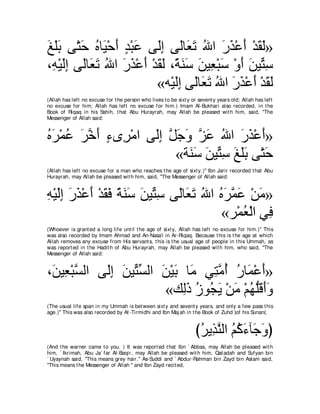 «لَقَدْ أَعْذَرَ اللهُ تَعَالَى إِلَى عَبْدٍ أَحْيَاهُ حَتَّى بَلَغَ
سِتِّينَ أَوْ سَبْعِينَ سَنَةً، لَقَدْ أَعْذَرَ اللهُ تَعَالَى إِلَيْهِ،
لَقَدْ أَعْذَرَ اللهُ تَعَالَى إِلَيْهِ»
(Allah has left no excuse for the person who lives to be sixty or seventy years old; Allah has left
no excuse for him; Allah has left no excuse for him.) Imam Al-Bukhari also recorded, in the
Book of Riqaq in his Sahih, that Abu Hurayrah, may Allah be pleased with him, said, "The
Messenger of Allah said:
«أَعْذَرَ اللهُ عَزَّ وَجَلَّ إِلَى امْرِىءٍ أَخَّرَ عُمْرَهُ
حَتَّى بَلَغَ سِتِّينَ سَنَةً»
(Allah has left no excuse for a man who reaches the age of sixty.)" Ibn Jarir recorded that Abu
Hurayrah, may Allah be pleased with him, said, "The Messenger of Allah said:
«مَنْ عَمَّرَهُ اللهُ تَعَالَى سِتِّينَ سَنَةً فَقَدْ أَعْذَرَ إِلَيْهِ
فِي الْعُمْرِ»
(Whoever is granted a long life until the age of sixty, Allah has left no excuse for him.)" This
was also recorded by Imam Ahmad and An-Nasa'i in Ar-Riqaq. Because this is the age at which
Allah removes any excuse from His servants, this is the usual age of people in this Ummah, as
was reported in the Hadith of Abu Hurayrah, may Allah be pleased with him, who said, "The
Messenger of Allah said:
«أَعْمَارُ أُمَّتِي مَا بَيْنَ السِّتِّينَ إِلَى السَّبْعِينَ،
وَأَقَلُّهُمْ مَنْ يَجُوزُ ذَلِكَ»
(The usual life span in my Ummah is between sixty and seventy years, and only a few pass this
age.)" This was also recorded by At-Tirmidhi and Ibn Majah in the Book of Zuhd )of his Sunan(.
(وَجَآءَكُمُ النَّذِيرُ)
(And the warner came to you. ) It was reported that Ibn `Abbas, may Allah be pleased with
him, `Ikrimah, Abu Ja`far Al-Baqir, may Allah be pleased with him, Qatadah and Sufyan bin
`Uyaynah said. "This means grey hair." As-Suddi and `Abdur-Rahman bin Zayd bin Aslam said,
"This means the Messenger of Allah " and Ibn Zayd recited,